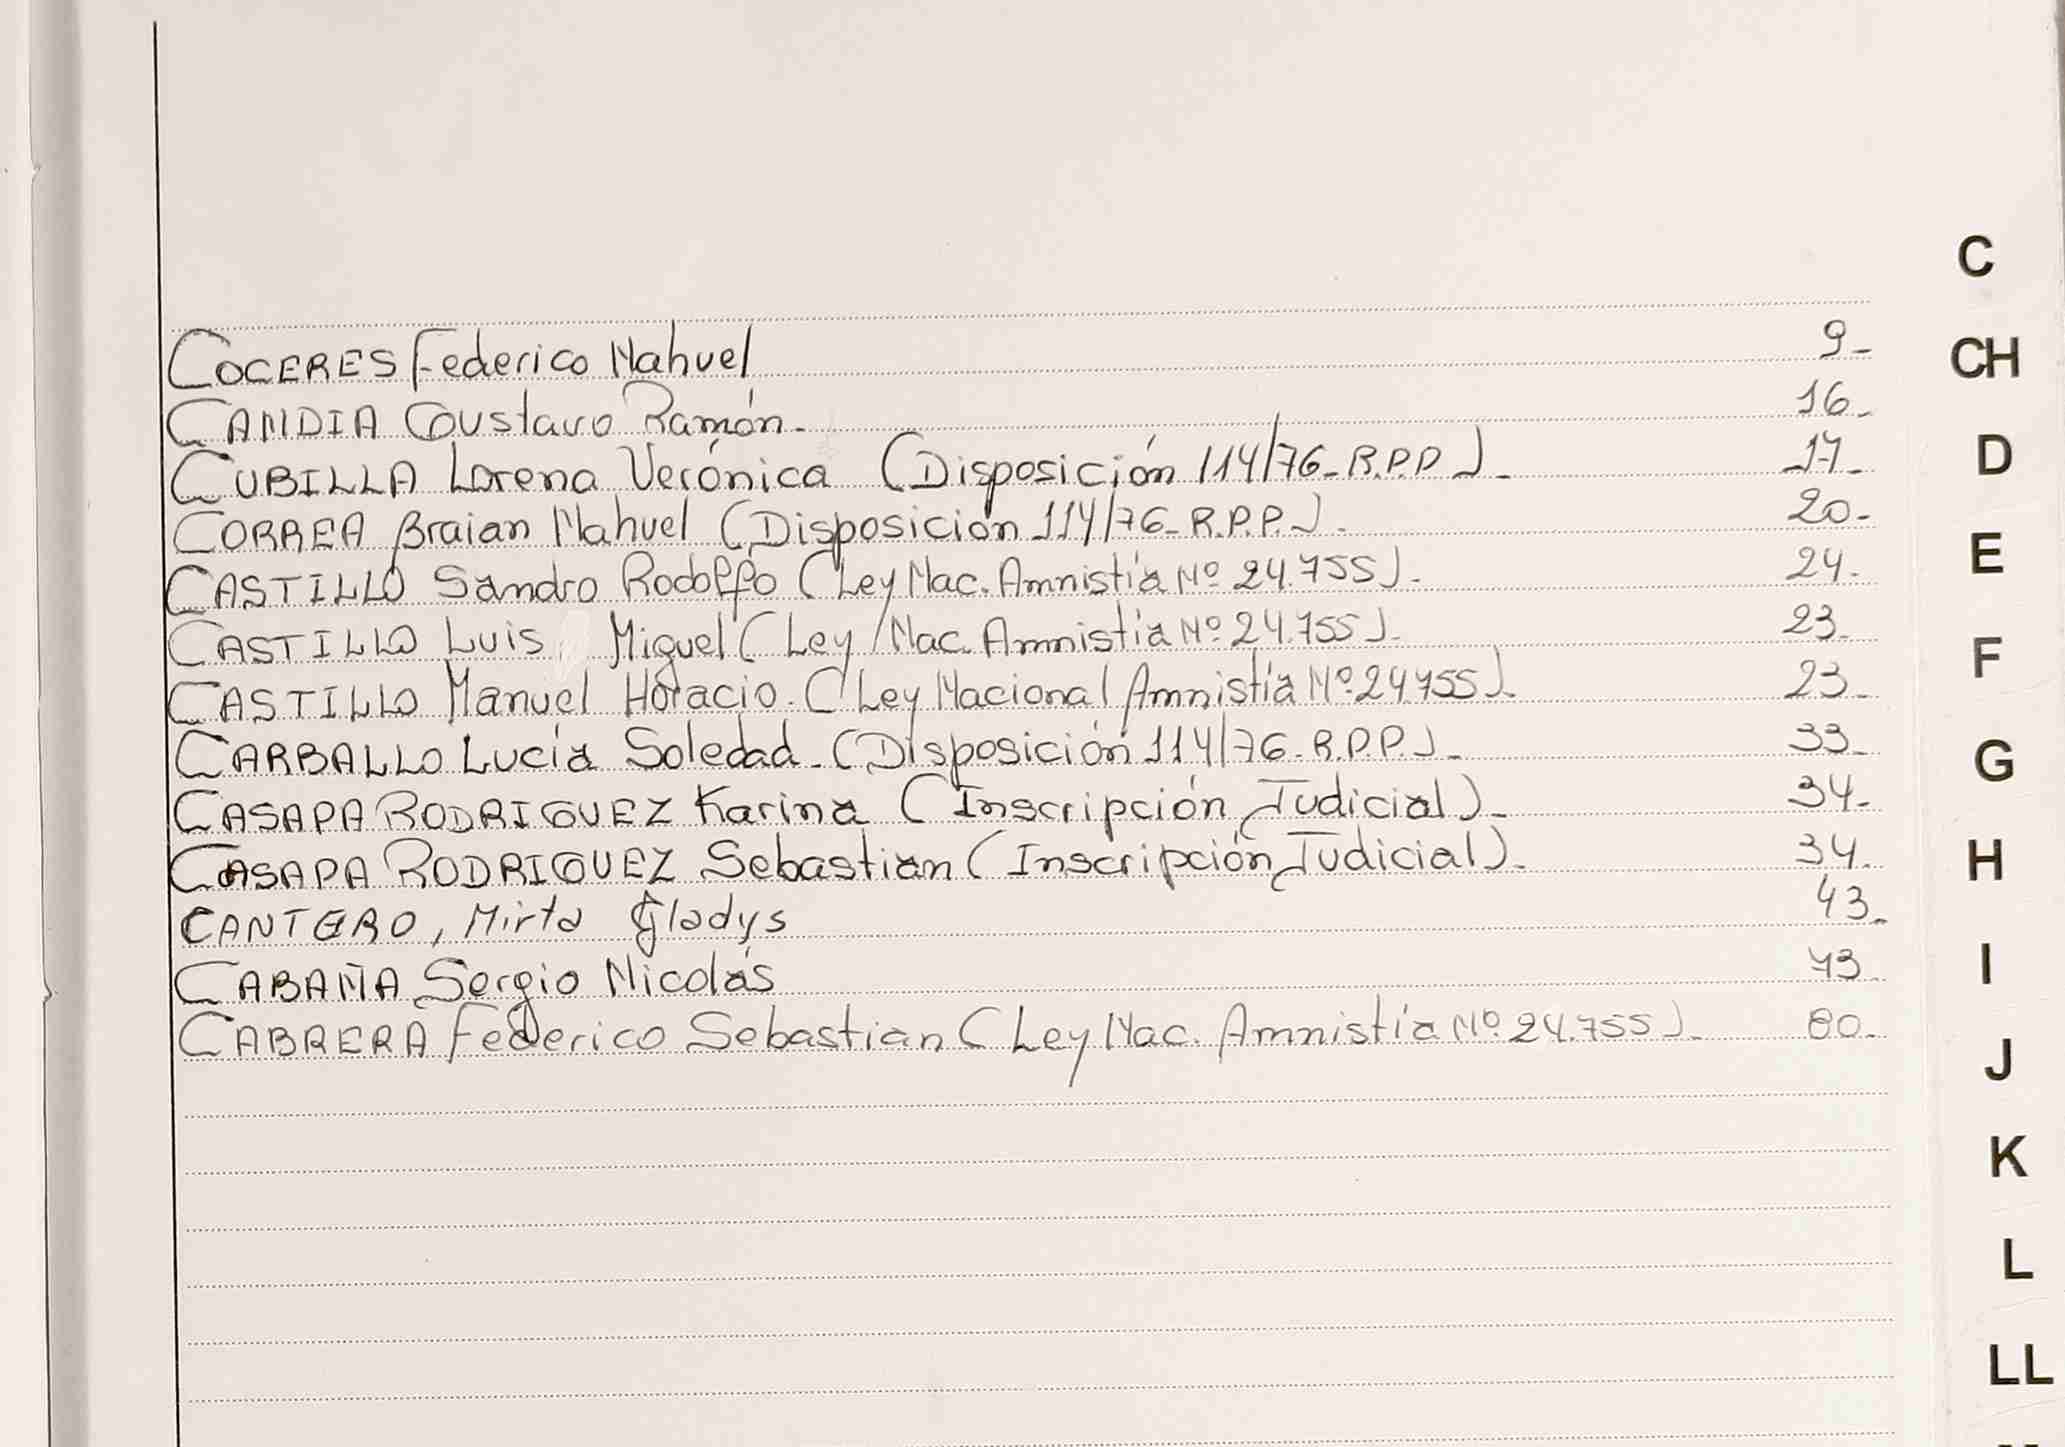 COCERES Federico Nahuel 9-
CANDIA Gustavo Ramón. 16-
CUBILLA Lorena Verónica (Disposición 114/76-R.P.P)- 17-
CORREA Braian Nahuel (Disposición 114/76-R.P.P.)- 20-
CASTILLO Sandro Rodolfo (Ley Nac. Amnistía Nº 24.755)- 24-
CASTILLO Luis Miguel (Ley Nac. Amnistía Nº 24.755)- 23-
CASTILLO Manuel Horacio. (Ley Nacional Amnistía Nº 24.755)- 23-
CARBALLO Lucía Soledad-(Disposición 114/76-R.P.P.)- 33-
CASAPA RODRIGUEZ Karina (Inscripción Judicial)- 34-
CASAPA RODRIGUEZ Sebastian (Inscripción Judicial)- 34-
CANTERO, Mirta Gladys 43-
CABAÑA Sergio Nicolás 43-
CABRERA Federico Sebastian (Ley Nac. Amnistía Nº 24.755)- 80-
C
CH
D
E
F
G
H
I
J
K
L
LL